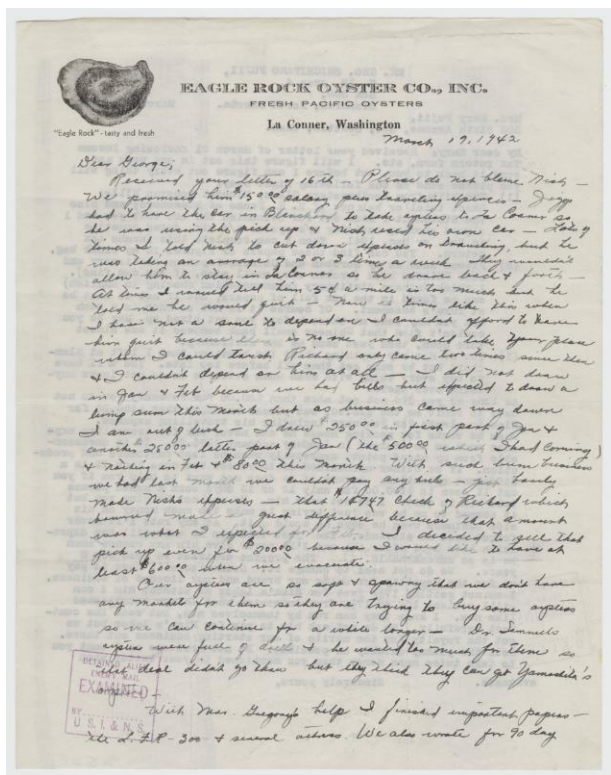 EAGLE ROCK OYSTER CO., INC.
FRESH PACIFIC OYSTERS
"Eagle Rock" - tasty and fresh
La Conner, Washington
March 19, 1942
Dear George;
Received your letter of 16th — Please do not blame Nish —
We promised him $150.00 salary plus traveling expenses —
had to have the car in Blanchard to take oysters to La Conner so
he was using the pick up & Nish used his own car — Lots of
times I told Nish to cut down expenses on traveling, but he
was taking an average of 2 or 3 times a week. They wouldn't
allow him to stay in La Conner so he drove back & forth —
At times I would tell him 5¢ a mile is too much and he
told me he would quit — Now in times like this when
I have not a some to depend on I couldn't afford to have
him quit because there is no one who could take your place
whom I could trust Richard only came two times since then
& I couldn't depend on him at all — I did not draw
in Jan & Feb because we had bills but expected to draw a
living sum this month but as business came way down
I am out of luck — I drew $250.00 in first part of Jan &
another $250.00 latter part of Jan (the $500.00 I had coming)
& nothing in Feb & $80.00 this month. With such bum business
we had last month we couldn't pay any bills — just barely
made Nish's expenses — that $167.47 check of Richard which
bounced made a great difference because that amount
was what I expected for I decided to sell that
pick up even for $200.00 because I would like to have at
least $600.00 when we evacuate.
Our oysters are so soft & spawny that we don't have
any market for them so they are trying to buy some oysters
so we can continue for a while longer — Dr. Semmels
oysters were full of drills & he wanted too much for them so
that deal didn't go thru but they think they can get Yamashita's
oysters —
With Mrs. Gregory's help I finished important papers —
the & several others. We also wrote for 90 day
DETAINED ALIEN
ENEMY MAIL
EXAMINED
BY
U. S. I. & N. S.